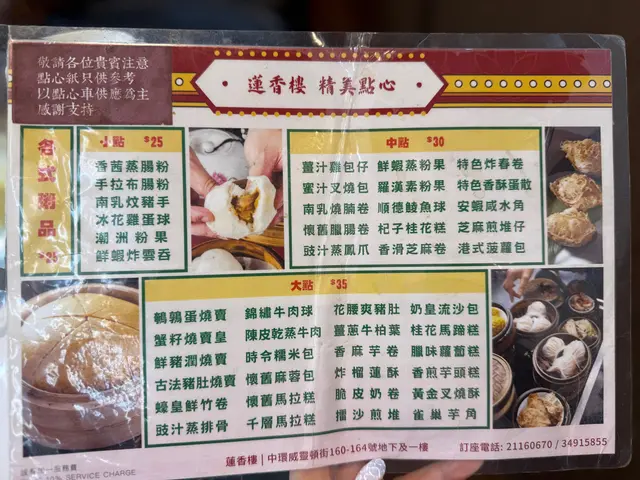 敬請各位貴賓注意
點心紙只供參考
以點心車供應為主
感謝支持
蓮香樓 精美點心
各式粥品
$35
小點 $25
香茜蒸腸粉
手拉布腸粉
南乳炆豬手
冰花雞蛋球
潮洲粉果
鮮蝦炸雲吞
中點 $30
薑汁雞包仔 鮮蝦蒸粉果 特色炸春卷
蜜汁叉燒包 羅漢素粉果 特色香酥蛋散
南乳燒腩卷 順德鯪魚球 安蝦咸水角
懷舊臘腸卷 杞子桂花糕 芝麻煎堆仔
豉汁蒸鳳爪 香滑芝麻卷 港式菠蘿包
大點 $35
鵪鶉蛋燒賣 錦繡牛肉球 花腰爽豬肚 奶皇流沙包
蟹籽燒賣皇 陳皮乾蒸牛肉 薑蔥牛柏葉 桂花馬蹄糕
鮮豬潤燒賣 時令糯米包 香麻芋卷 臘味蘿蔔糕
古法豬肚燒賣 懷舊麻蓉包 炸榴蓮酥 香煎芋頭糕
蠔皇鮮竹卷 懷舊馬拉糕 脆皮奶卷 黃金叉燒酥
豉汁蒸排骨 千層馬拉糕 擂沙煎堆 雀巢芋角
蓮香樓 | 中環威靈頓街160-164號地下及一樓 訂座電話: 21160670 / 34915855
服務費
10% SERVICE CHARGE